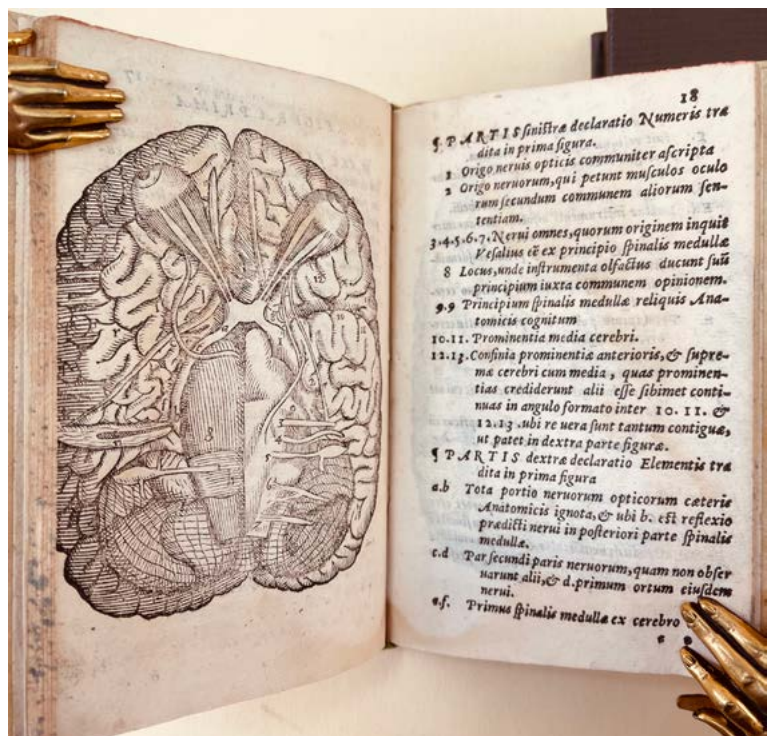 18
¶ PARTIS sinistræ declaratio Numeris tra
dita in prima figura.
1 Origo neruis opticis communiter ascripta
2 Origo neruorum, qui petunt musculos oculo
rum secundum communem aliorum sen-
tentiam.
3.4.5.6.7. Nerui omnes, quorum originem inquit
Vesalius eẽ ex principio spinalis medullæ
8 Locus, unde instrumenta olfactus ducunt suũ
principium iuxta communem opinionem.
9.9 Principium spinalis medullæ reliquis Ana-
tomicis cognitum
10.11. Prominentia media cerebri.
12.13. Confinia prominentiæ anterioris, & supre-
mæ cerebri cum media, quas prominen-
tias crediderunt alii esse sibimet conti-
nuas in angulo formato inter 10. 11. &
12.13. ubi re uera sunt tantum contiguæ,
ut patet in dextra parte figuræ.
¶ PARTIS dextræ declaratio Elementis tra
dita in prima figura
a.b Tota portio neruorum opticorum cæteris
Anatomicis ignota, & ubi b. est reflexio
prædicti nerui in posteriori parte spinalis
medullæ.
c.d Par secundi paris neruorum, quam non obser
uarunt alii, & d. primum ortum eiusdem
nerui.
e.f. Primus spinalis medullæ ex cerebro